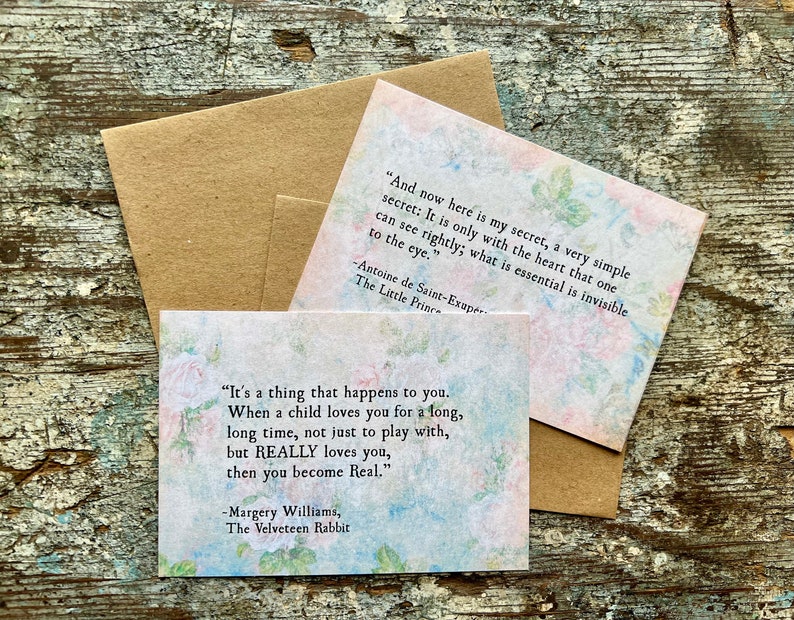 “And now here is my secret, a very simple
secret: It is only with the heart that one
can see rightly; what is essential is invisible
to the eye.”
-Antoine de Saint-Exuper
The Little Prince
“It's a thing that happens to you.
When a child loves you for a long,
long time, not just to play with,
but REALLY loves you,
then you become Real.”
-Margery Williams,
The Velveteen Rabbit